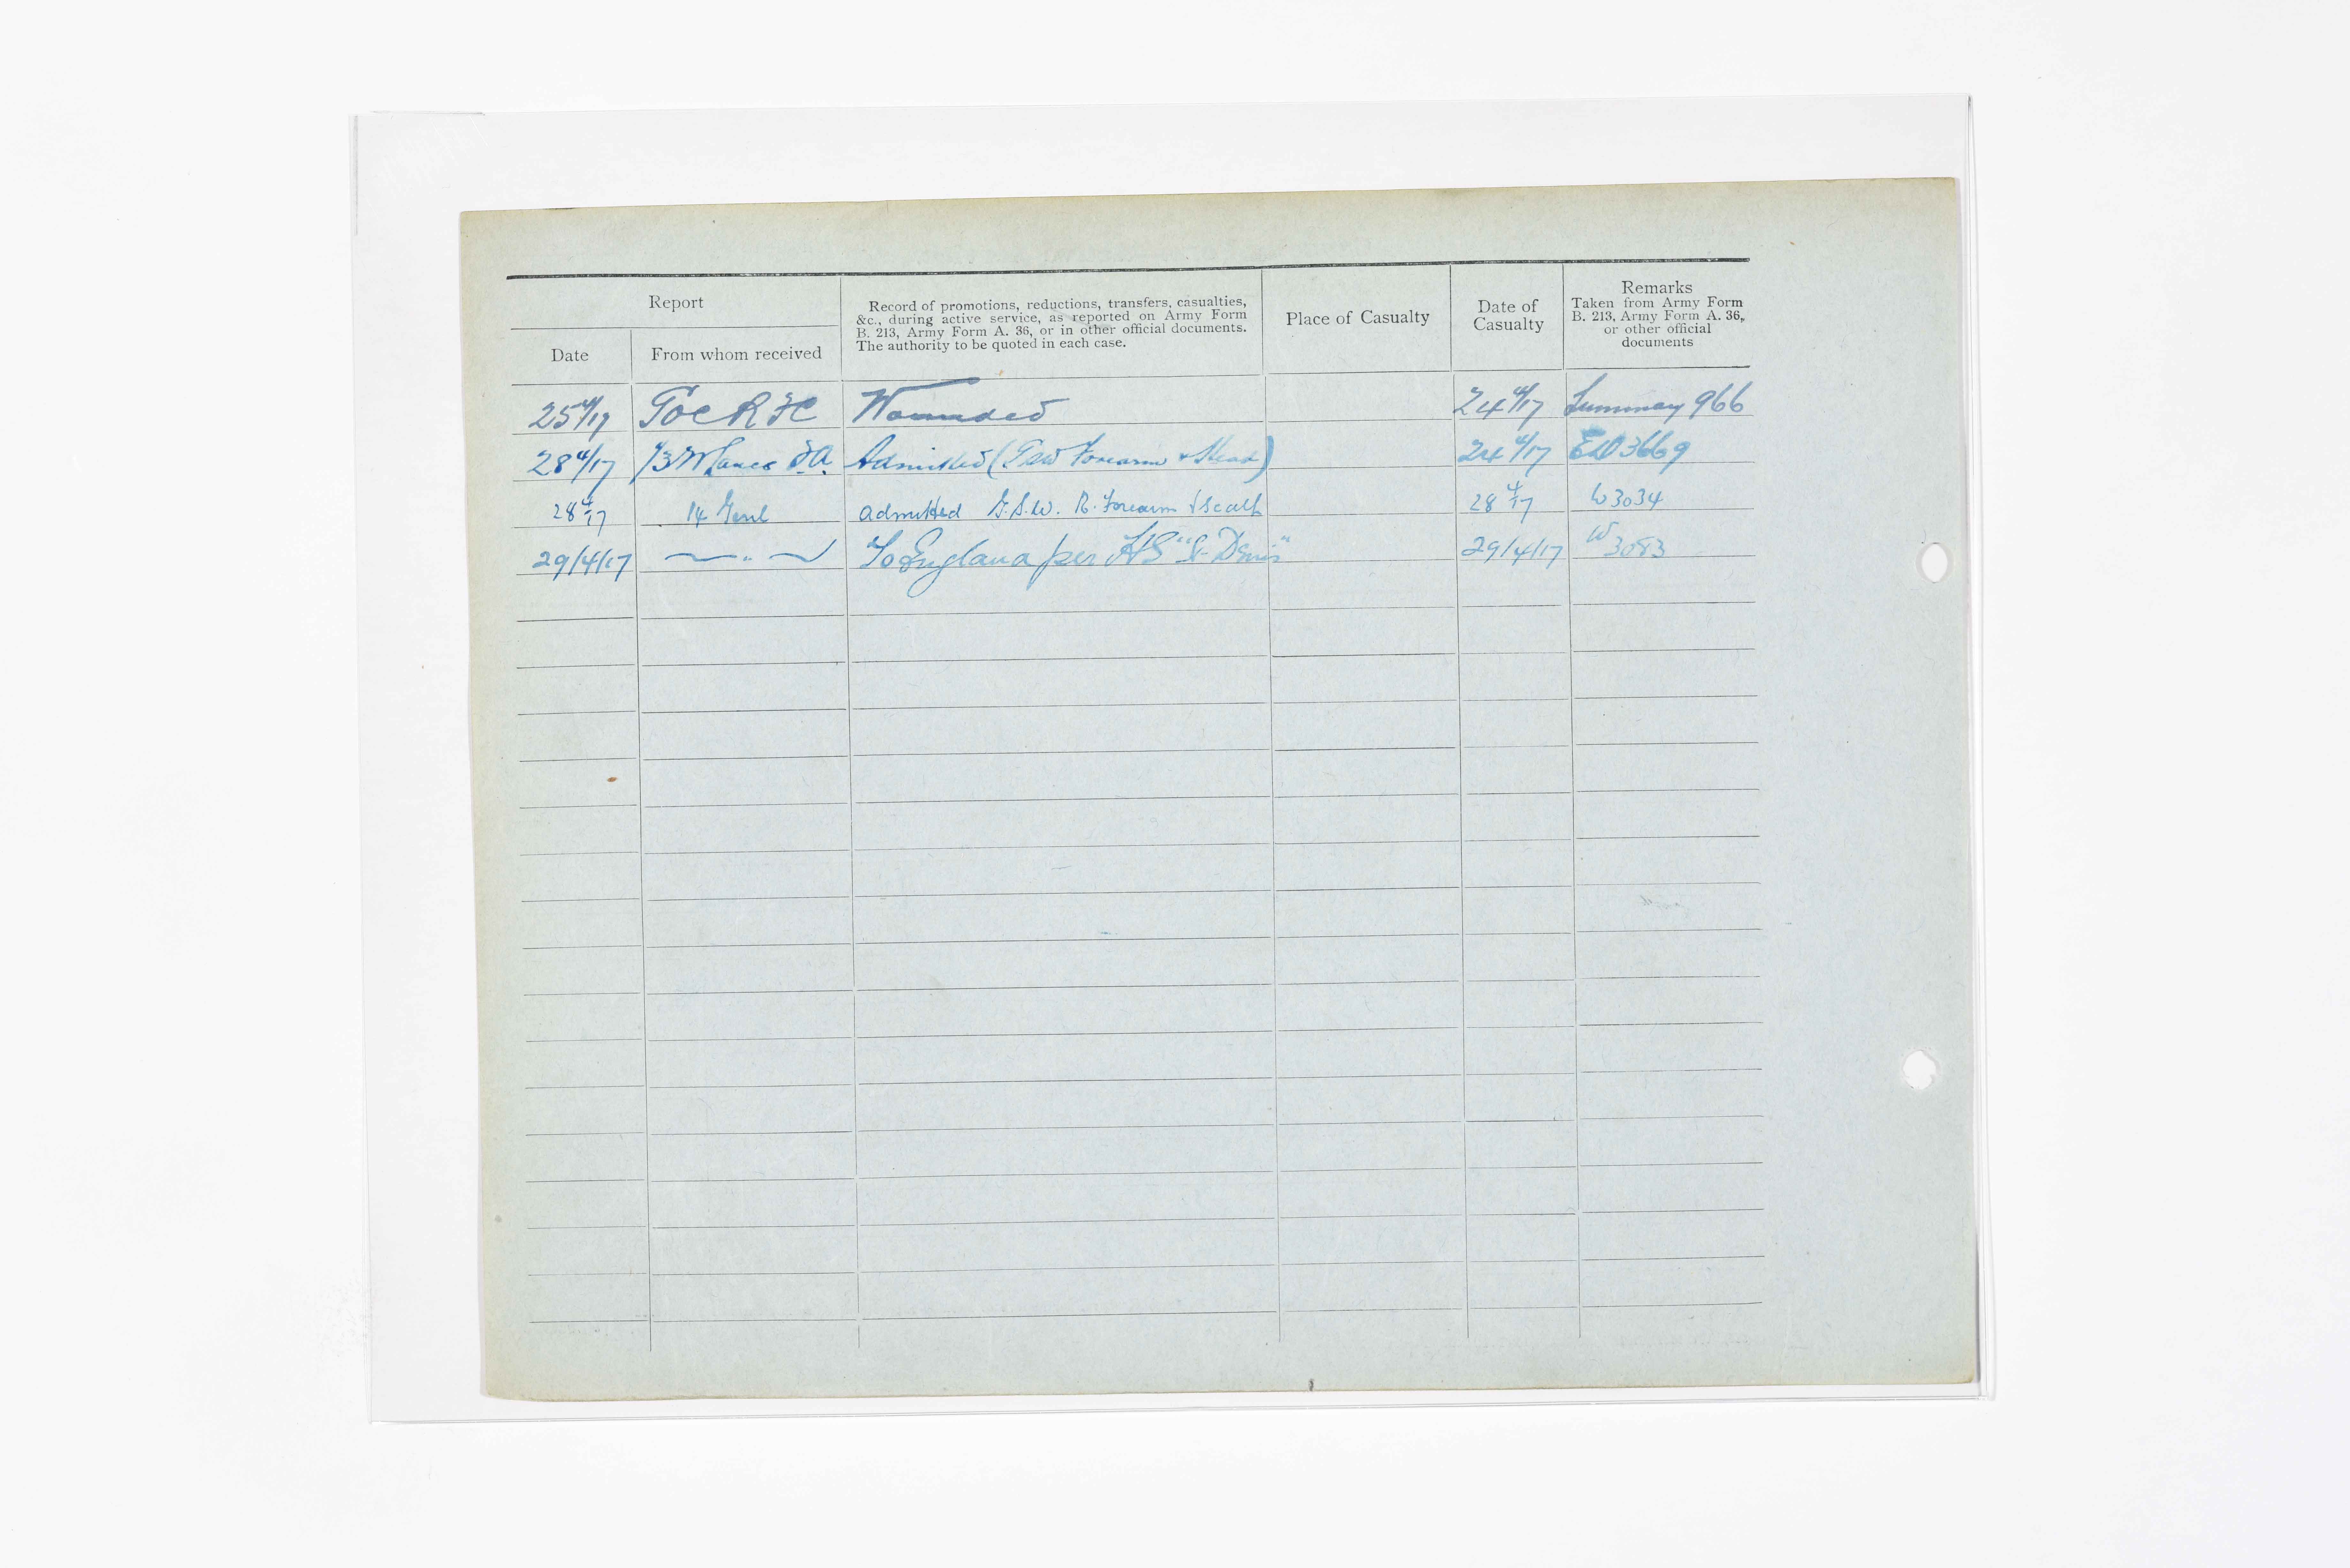 Report
Date
From whom received
Record of promotions, reductions, transfers, casualties,
&c., during active service, as reported on Army Form
B. 213, Army Form A. 36, or in other official documents.
The authority to be quoted in each case.
Place of Casualty
Date of
Casualty
Remarks
Taken from Army Form
B. 213, Army Form A. 36,
or other official
documents
25/4/17 GOC RFC Wounded 24/4/17 Summary 966
28/4/17 Admitted (GSW Forearm & Head) 24/4/17 3669
28 4/17 14 Genl admitted G.S.W. R. Forearm & Scalp 28 4/17 W3034
29/4/17 — " — To England per HS "St Denis" 29/4/17 W 3083